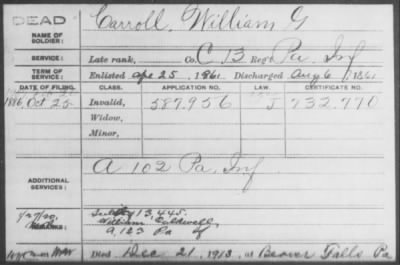 DEAD
NAME OF SOLDIER: Carroll, William G
SERVICE: Late rank, Co. C, 13 Reg't Pa. Inf
TERM OF SERVICE: Enlisted Apr 25, 1861 Discharged Aug 6, 1861
DATE OF FILING. CLASS. APPLICATION NO. LAW. CERTIFICATE NO.
1886, Oct 25 Invalid, 587,956 J 732,770
Widow,
Minor,
ADDITIONAL SERVICES: A 102 Pa. Inf
413,445.
William Caldwell,
A 123 Pa Inf
Died Dec 21, 1913, at Beaver Falls Pa